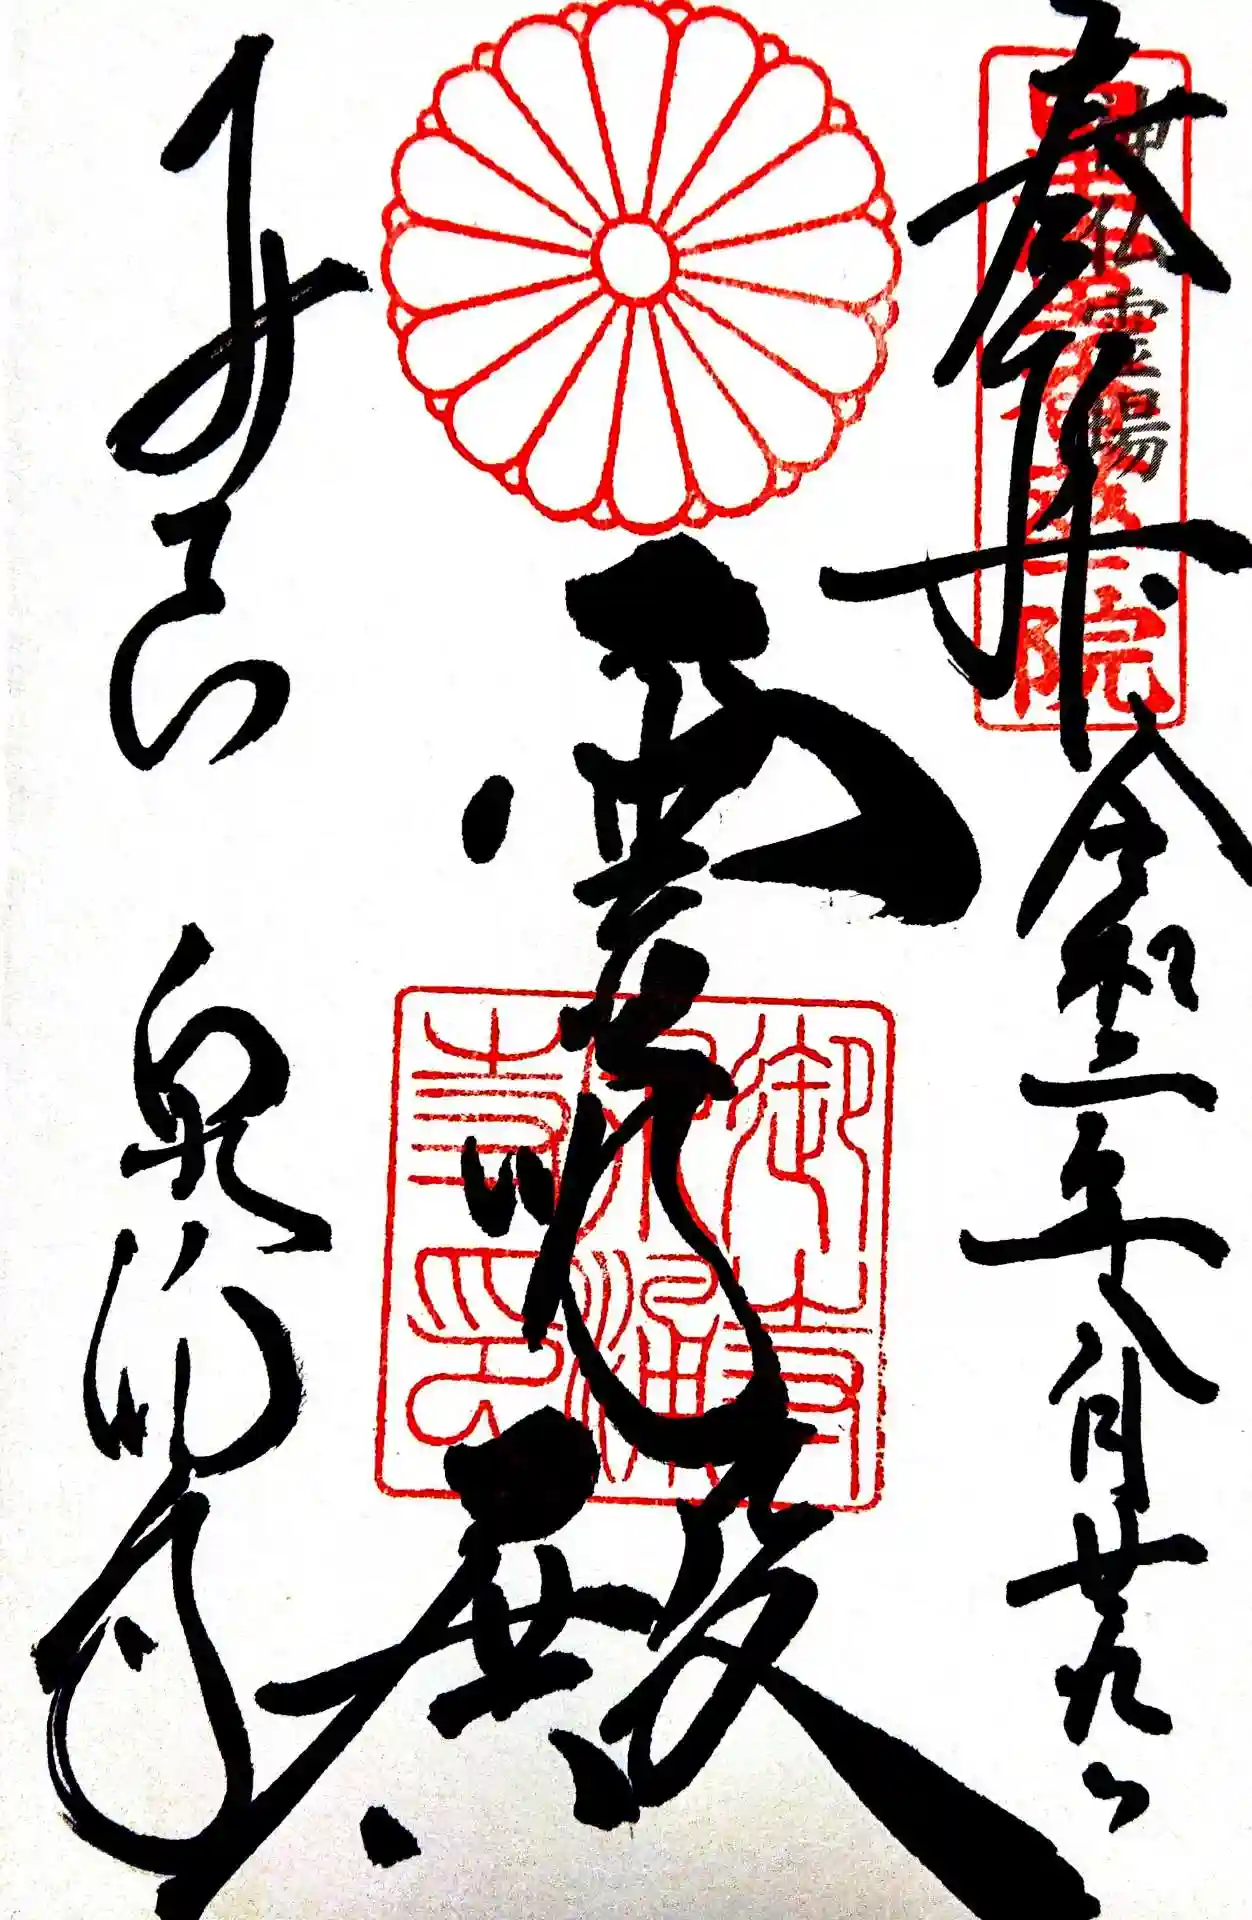 奉拝
神仏霊場
皇室香華院
令和三年八月廿九日
霊明殿
御寺
泉涌
寺印
みてら 泉涌寺